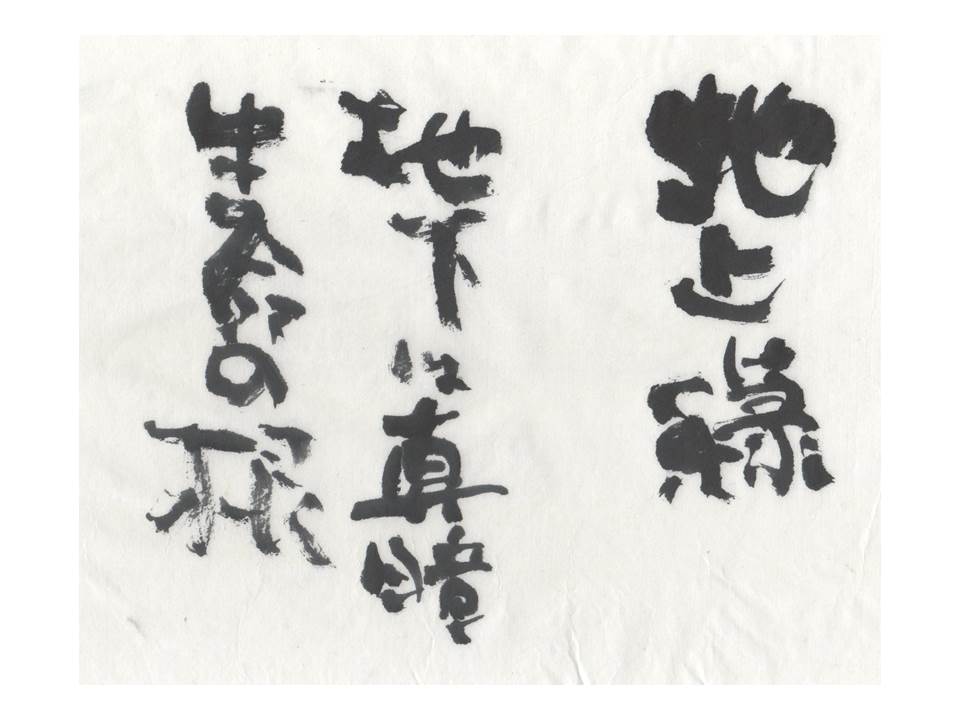 地上は緑
地下は真暗
生命の根